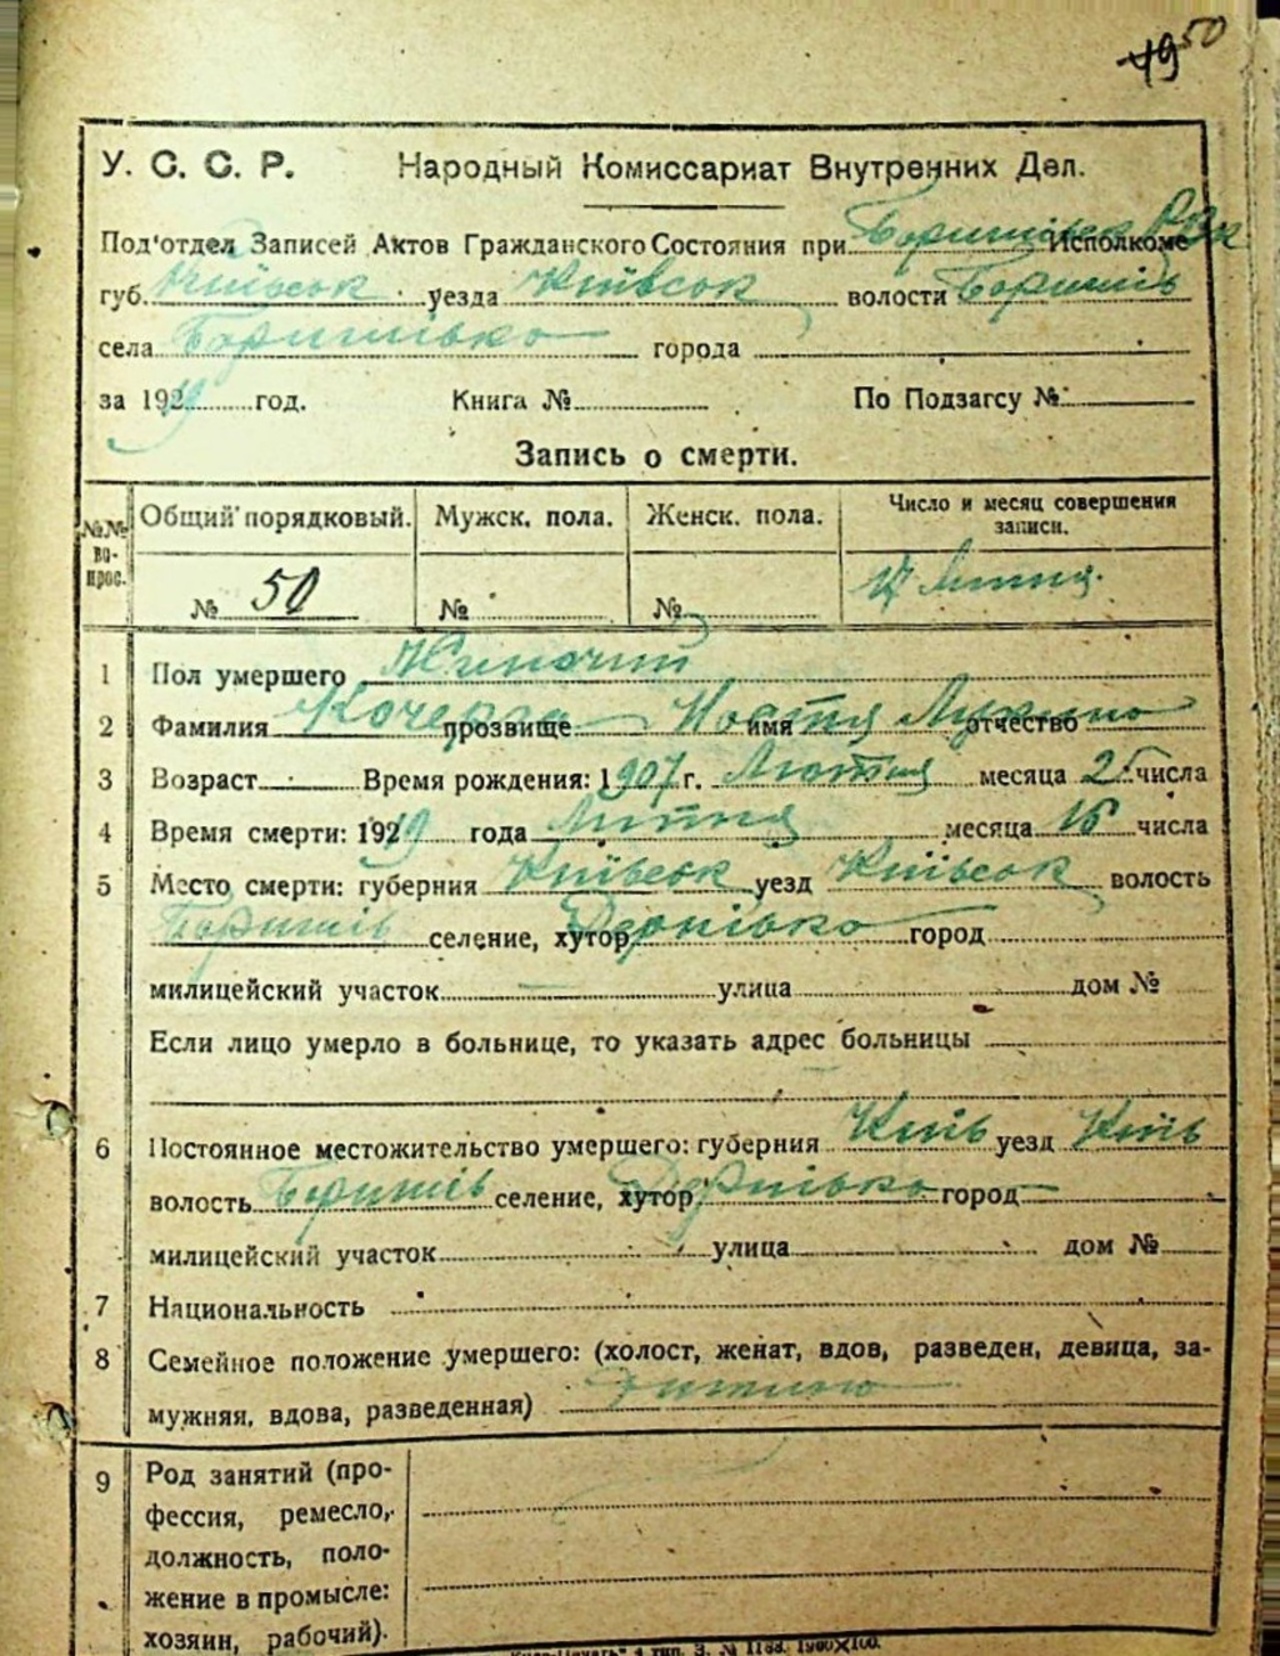 49 50
У. С. С. Р. Народный Комиссариат Внутренних Дел.
Под'отдел Записей Актов Гражданского Состояния при Исполкоме
губ. Київськ уезда Київськ волости Боришпів
села города
за 1929 год. Книга № По Подзагсу №
Запись о смерти.
№№ во-прос. Общий порядковый. Мужск. пола. Женск. пола. Число и месяц совершения записи.
№ 50 № № 17 Липня.
1 Пол умершего Жиночий
2 Фамилия Кочерга прозвище Настя имя Лукино отчество
3 Возраст Время рождения: 1907 г. Лютня месяца 25 числа
4 Время смерти: 1929 года Липня месяца 16 числа
5 Место смерти: губерния Київськ уезд Київськ волость
селение, хутор город
милицейский участок улица дом №
Если лицо умерло в больнице, то указать адрес больницы
6 Постоянное местожительство умершего: губерния Київ уезд Київ
волость селение, хутор город
милицейский участок улица дом №
7 Национальность
8 Семейное положение умершего: (холост, женат, вдов, разведен, девица, за-
мужняя, вдова, разведенная)
9 Род занятий (про-
фессия, ремесло,
должность, поло-
жение в промысле:
хозяин, рабочий).